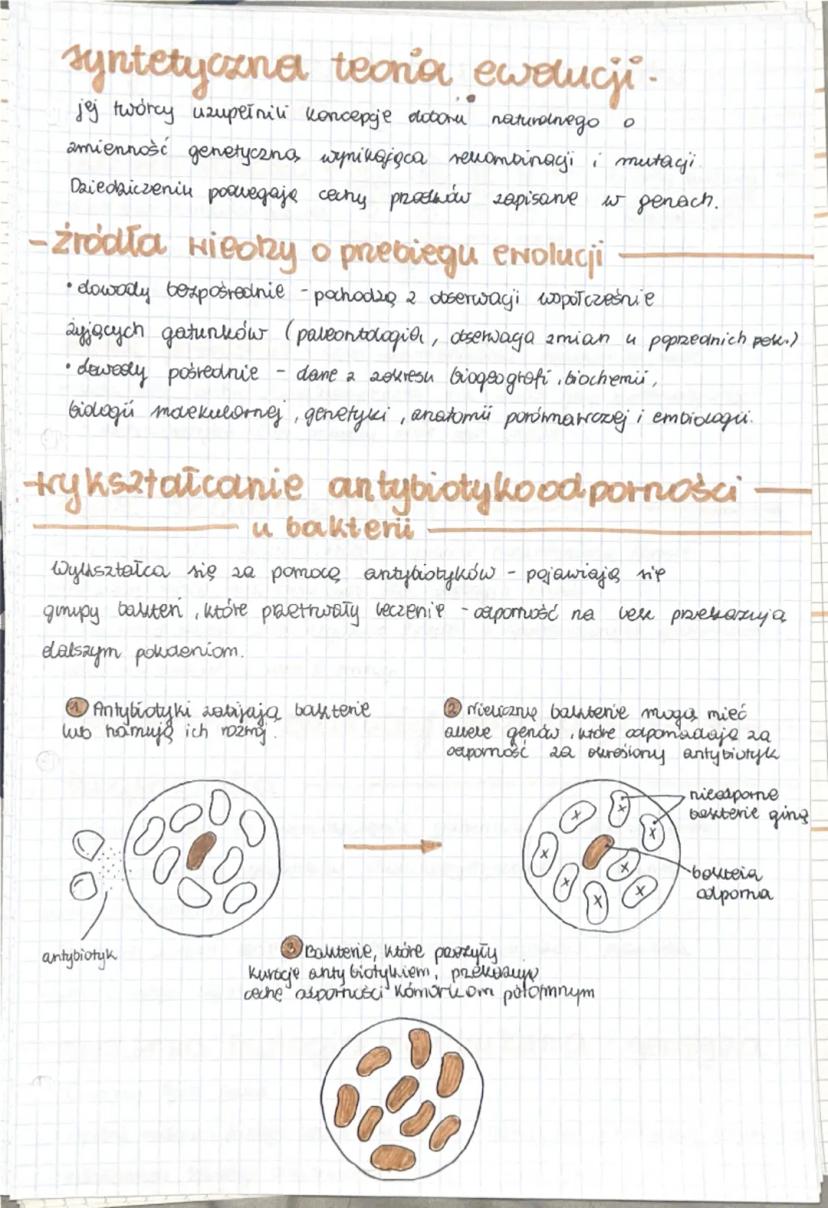 syntetyczna teoria ewolucji.
jej twórcy uzupełnili koncepcje doboru naturalnego o
zmienność genetyczną wynikająca rekombinacji i mutacji.
Dziedziczeniu podlegają cechy przodków zapisane w genach.
- źródła wiedzy o przebiegu ewolucji
• dowody bezpośrednie - pochodzą z obserwacji wspołcześnie
żyjących gatunków (paleontologia, obserwacja zmian u poprzednich pok.)
• dowody pośrednie - dane z zakresu biogeografi, biochemii,
biologii molekularnej, genetyki, anatomii porównawczej i embiologii.
- wykształcanie antybiotykoodporności
u bakterii
Wykształca się za pomocą antybiotyków - pojawiają się
grupy bakterii, które przetrwały leczenie - odporność na lek przekazują
dalszym pokoleniom.
1 Antybiotyki zabijają bakterie
lub hamują ich rozwój.
2 Nieliczne bakterie mogą mieć
allele genów, które odpowiadają za
odporność za określony antybiotyk
nieodporne
bakterie giną
bakteria
odporna
antybiotyk
3 Bakterie, które przeżyły
kuracje antybiotykiem, przekazują
cechę odporności komórkom potomnym